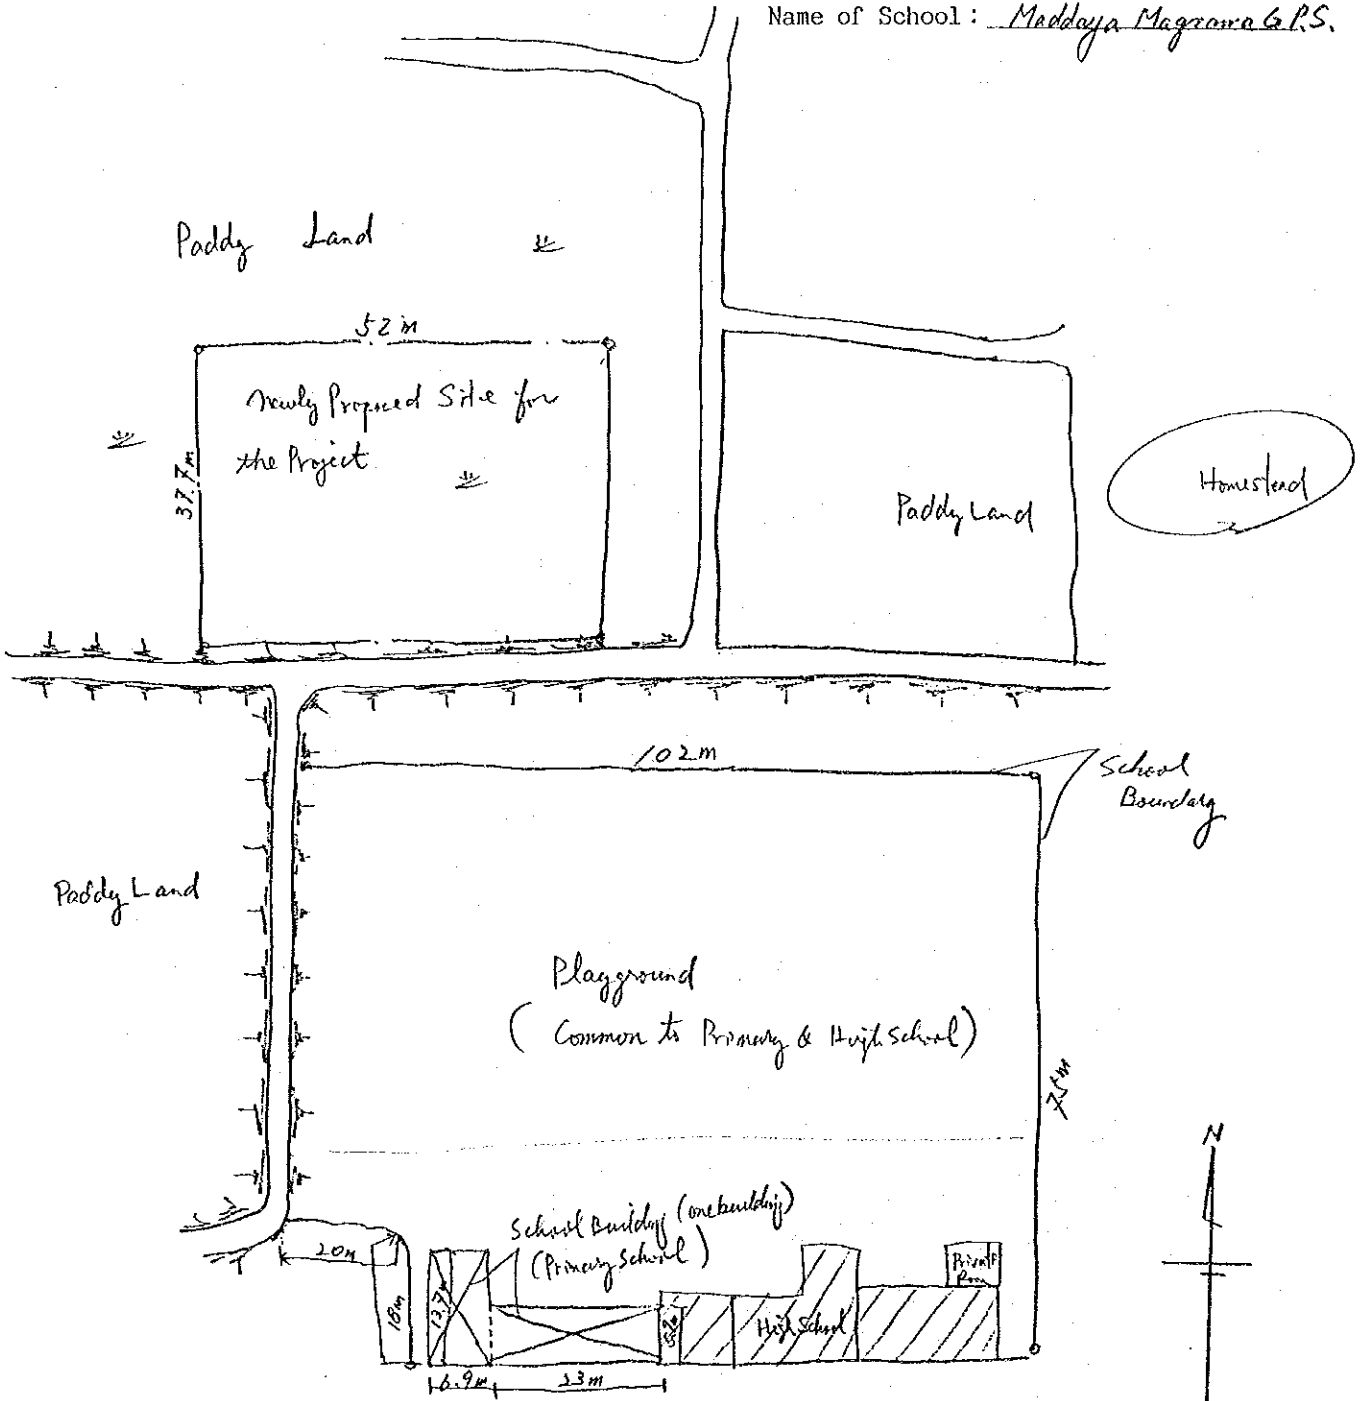 Name of School: Maddaya Magrama G.P.S.
Paddy Land
52 m
Newly Proposed Site for
the Project
37.7m
Paddy Land
Homestead
102m
School
Boundary
Paddy Land
Playground
( Common to Primary & High School )
75m
N
School Building (one building)
(Primary School)
20m
18m
13.7m
High School
6.9m
23m